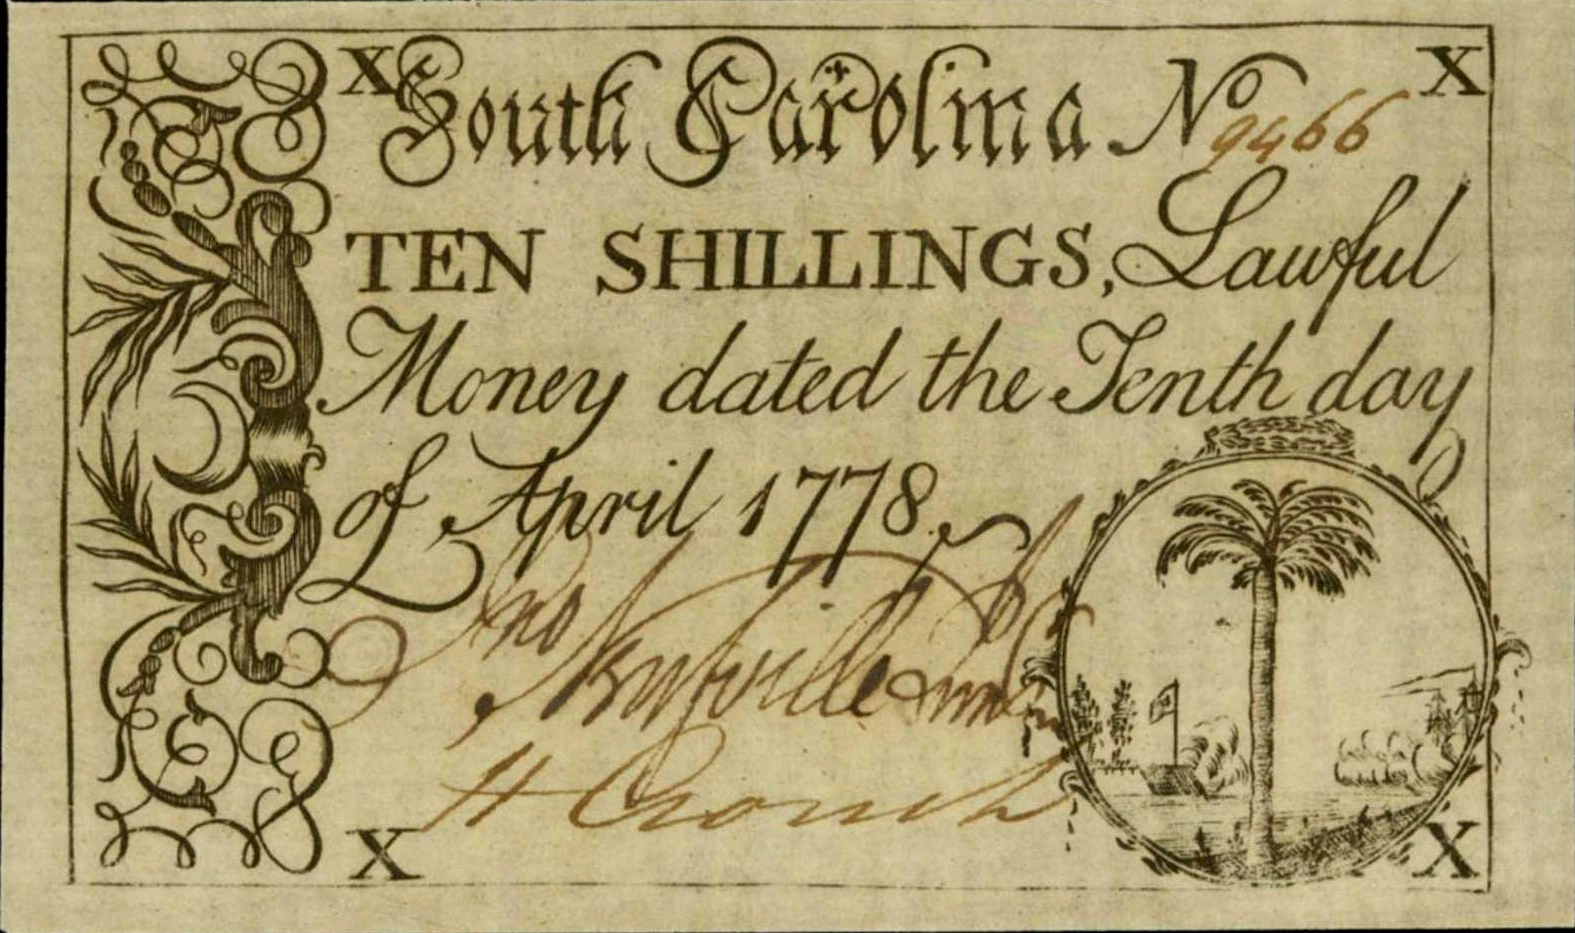 X South Carolina No 9466 X
TEN SHILLINGS, Lawful
Money dated the Tenth day
of April 1778.
Jno Neufville Junr
H Crouch
X X